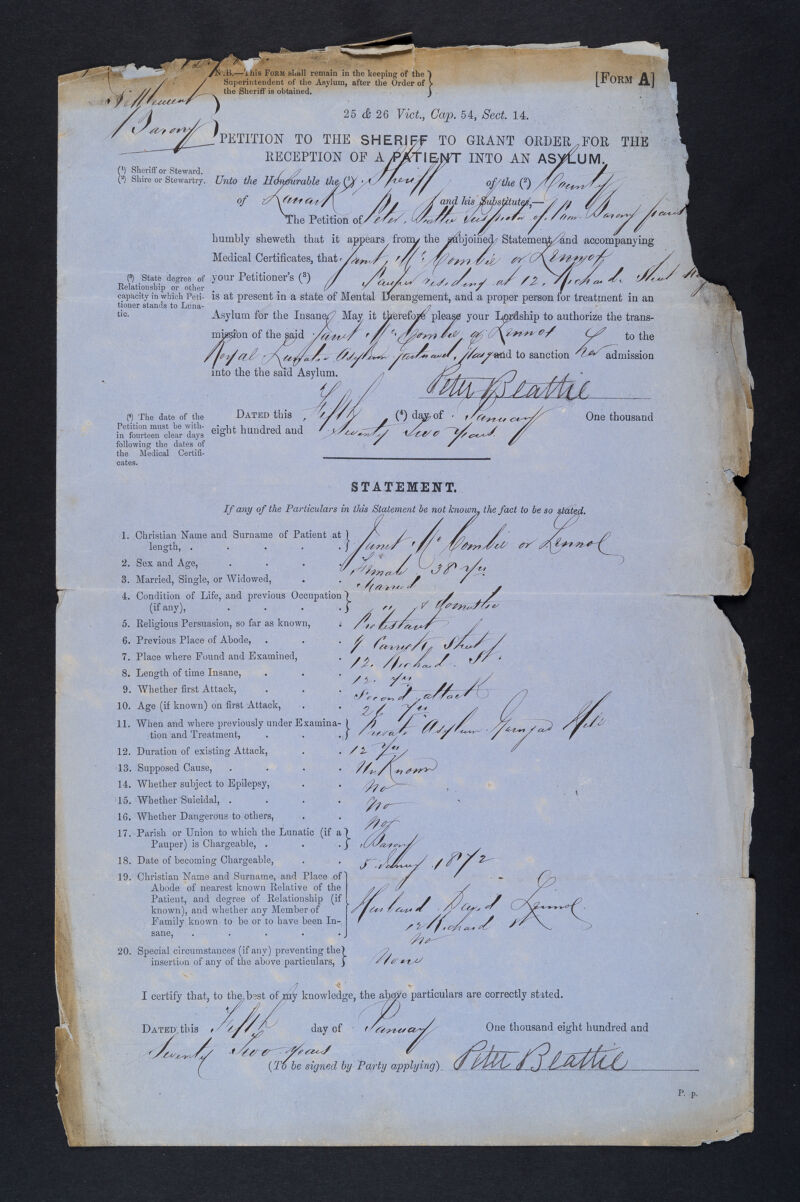 N.B.—This Form shall remain in the keeping of the
Superintendent of the Asylum, after the Order of
the Sheriff is obtained.
[Form A]
Barony
25 & 26 Vict., Cap. 54, Sect. 14.
PETITION TO THE SHERIFF TO GRANT ORDER FOR THE
RECEPTION OF A PATIENT INTO AN ASYLUM.
(1) Sheriff or Steward.
(2) Shire or Stewartry.
Unto the Honourable the (1) Sheriff of the (2) County
of Lanark and his Substitutes,—
The Petition of Peter Beattie Inspector of Poor Barony
humbly sheweth that it appears from the subjoined Statement and accompanying
Medical Certificates, that Janet McCombie or Lennox
(3) State degree of
Relationship or other
capacity in which Peti-
tioner stands to Luna-
tic.
your Petitioner's (3) Pauper residing at 12 Richard Street
is at present in a state of Mental Derangement, and a proper person for treatment in an
Asylum for the Insane. May it therefore please your Lordship to authorize the trans-
mission of the said Janet McCombie or Lennox to the
Royal Lunatic Asylum Gartnavel, Glasgow and to sanction her admission
into the the said Asylum.
Peter Beattie
(4) The date of the
Petition must be with-
in fourteen clear days
following the dates of
the Medical Certifi-
cates.
Dated this Fifth (4) day of January One thousand
eight hundred and Seventy Two years
STATEMENT.
If any of the Particulars in this Statement be not known, the fact to be so stated.
1. Christian Name and Surname of Patient at
length, . . . . . Janet McCombie or Lennox
2. Sex and Age, . . . . Female 38 yrs
3. Married, Single, or Widowed, . . Married
4. Condition of Life, and previous Occupation
(if any), . . . . . " & domestic
5. Religious Persuasion, so far as known, . Protestant
6. Previous Place of Abode, . . . 9 Street
7. Place where Found and Examined, . 12 Richard St.
8. Length of time Insane, . . . 12 yrs
9. Whether first Attack, . . . Second attack
10. Age (if known) on first Attack, . . 26 yrs
11. When and where previously under Examina-
tion and Treatment, . . . . Private Asylum Garngad Hill
12. Duration of existing Attack, . . 12 yrs
13. Supposed Cause, . . . . Unknown
14. Whether subject to Epilepsy, . . No
15. Whether Suicidal, . . . . No
16. Whether Dangerous to others, . . No
17. Parish or Union to which the Lunatic (if a
Pauper) is Chargeable, . . . . Barony
18. Date of becoming Chargeable, . . 5 January 1872
19. Christian Name and Surname, and Place of
Abode of nearest known Relative of the
Patient, and degree of Relationship (if
known), and whether any Member of
Family known to be or to have been In-
sane, . . . . . .
Husband David Lennox
12 Richard St
No
20. Special circumstances (if any) preventing the
insertion of any of the above particulars, None
I certify that, to the best of my knowledge, the above particulars are correctly stated.
Dated this Fifth day of January One thousand eight hundred and
Seventy Two years
(To be signed by Party applying) Peter Beattie
P. p.